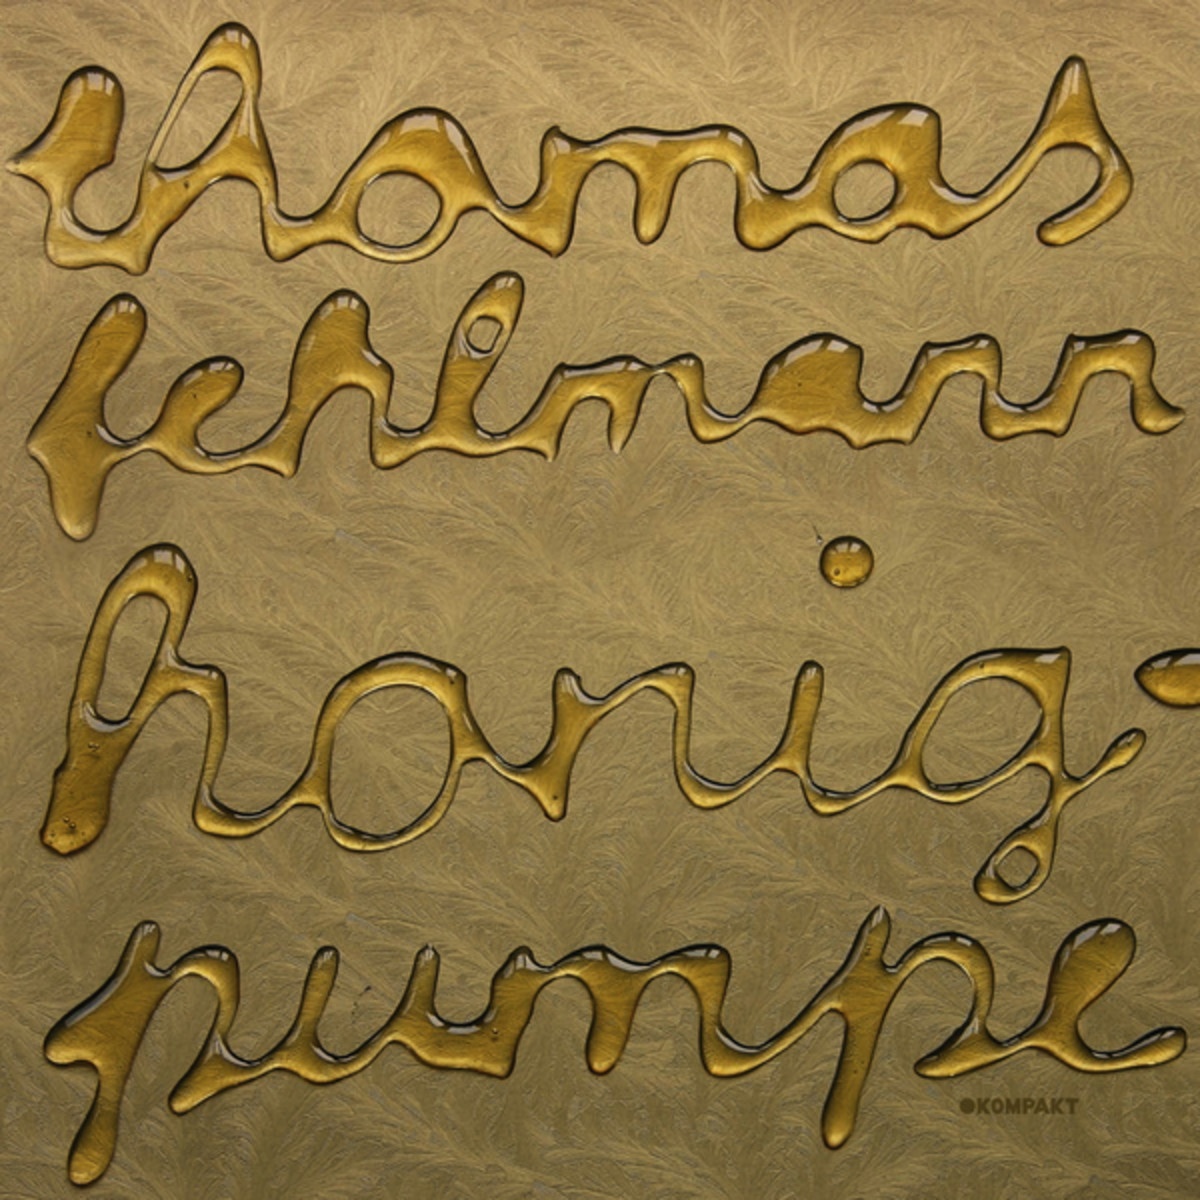 thomas
fehlmann
honig-
pumpe
KOMPAKT